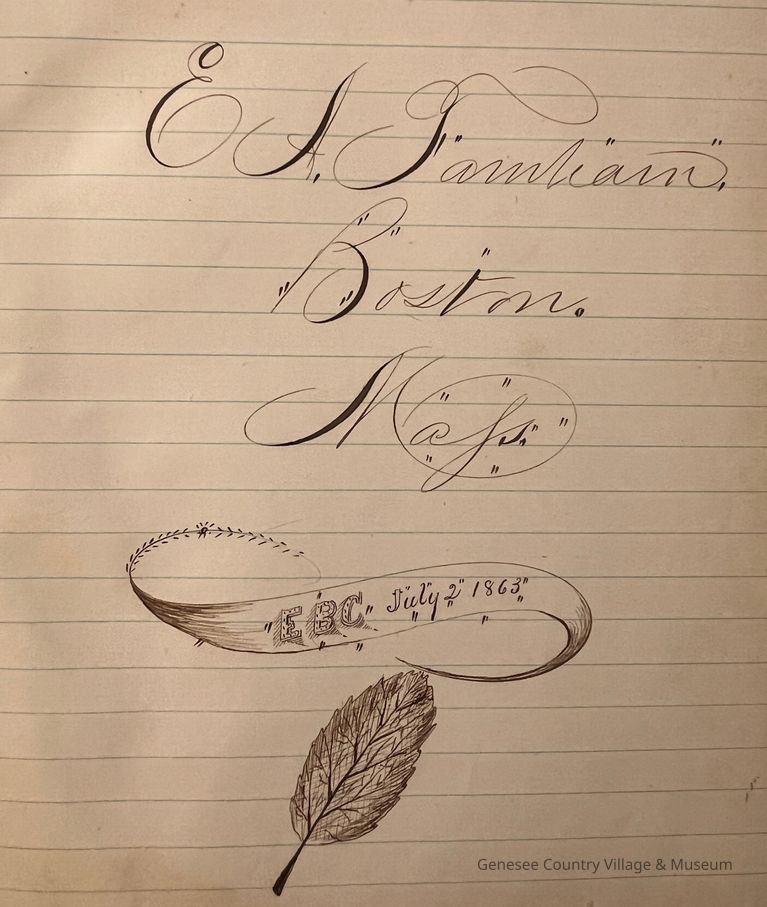 E. A. Farnham.
Boston.
Maſs.
E B C July 2 1863
Genesee Country Village & Museum